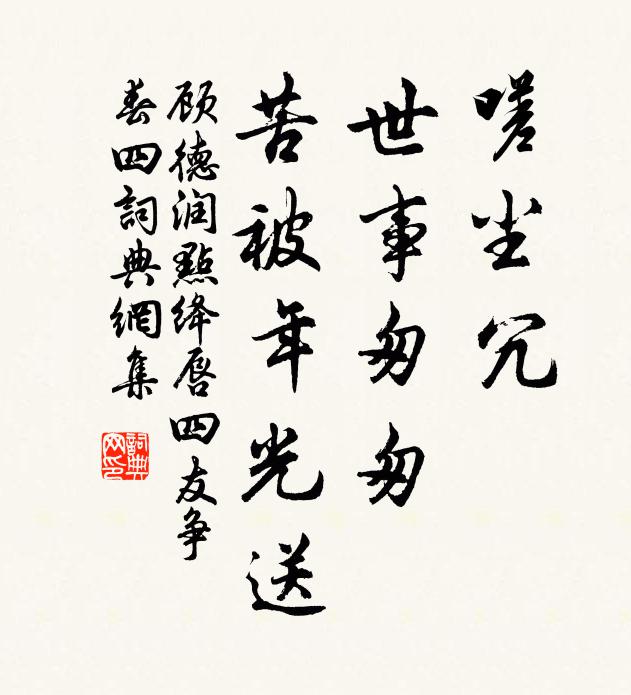 嗟尘冗
世事匆匆
苦被年光送
顾德润點绛唇四友争
春四詞典網集
詞典网印